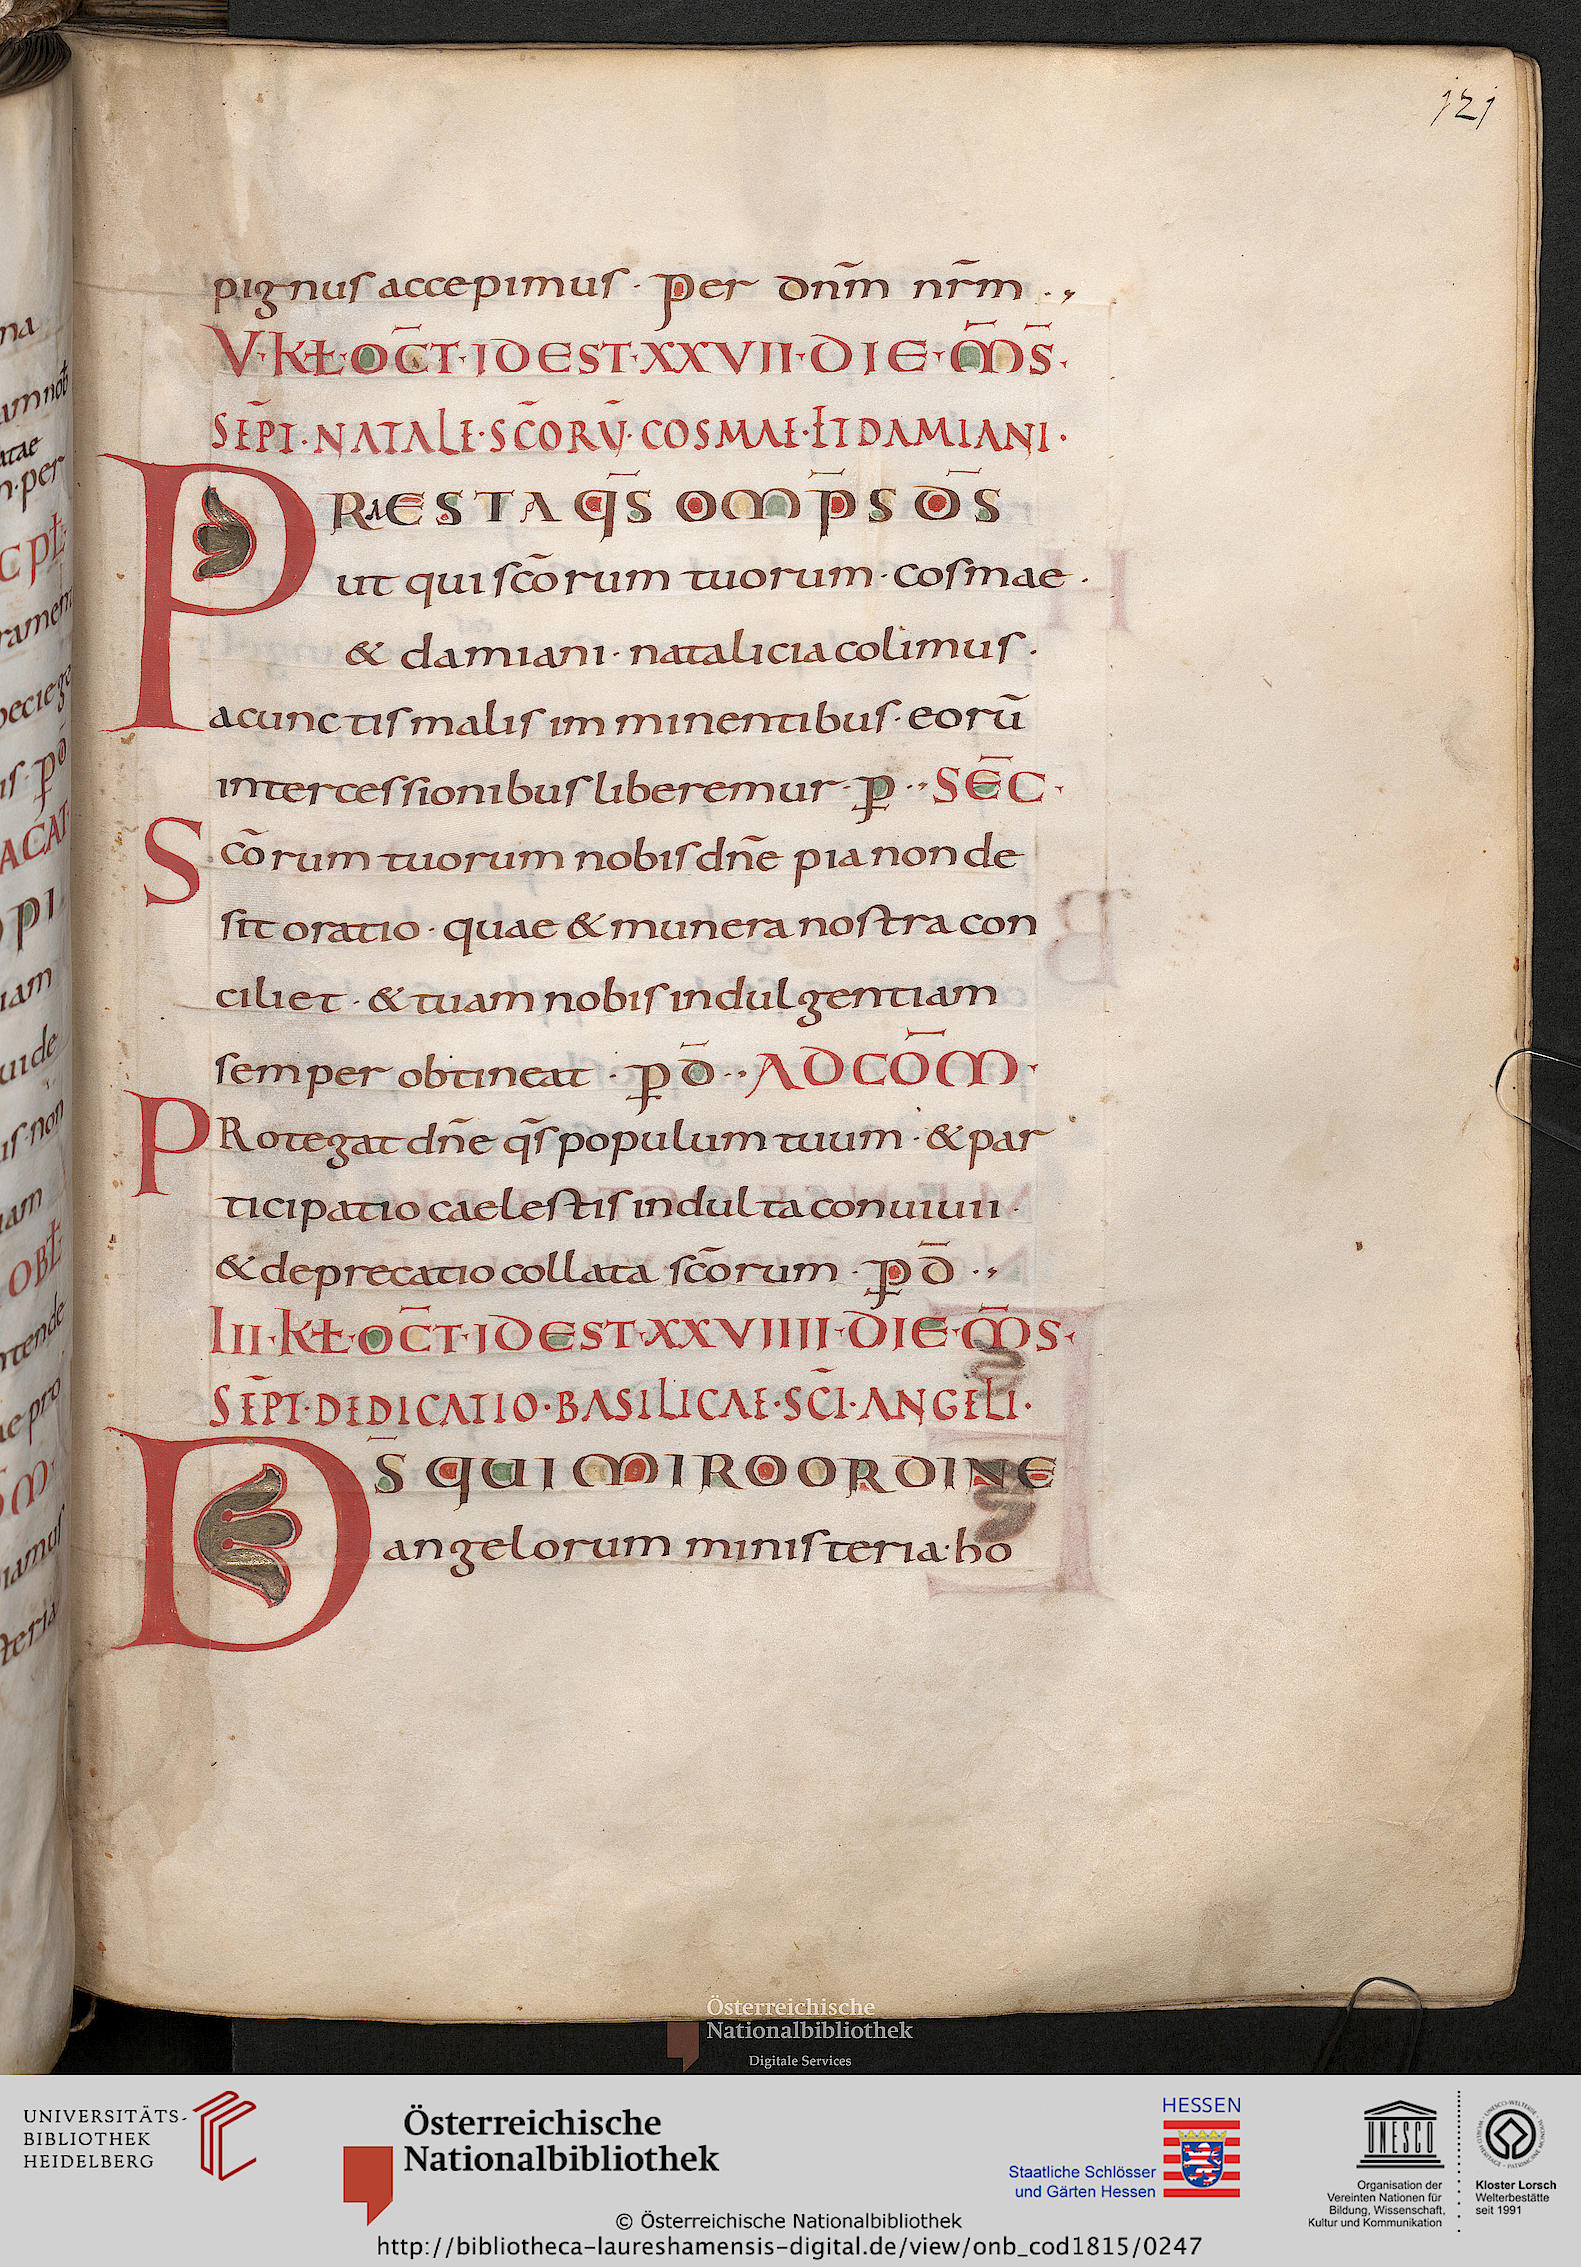 121
pignus accepimus · per dn̄m nr̄m ·,
V · KŁ · OC̄T · IDEST · XXVII · DIE · M̄S̄ ·
SĒPT · NATALE · SC̄ORV̄ · COSMAE · ET DAMIANI ·
PRAESTA Q̄S OMP̄S D̄S
ut qui sc̄orum tuorum · cosmae ·
& damiani · natalicia colimus ·
a cunctis malis imminentibus · eorū
intercessionibus liberemur · p̱ ·· SĒC ·
Sc̄orum tuorum nobis dn̄e pia non de
sit oratio · quae & munera nostra con
ciliet · & tuam nobis indulgentiam
semper obtineat · p̱ d̄ ·· AD CŌM ·
PRotegat dn̄e q̄s populum tuum · & par
ticipatio caelestis indulta conuiuii ·
& deprecatio collata sc̄orum · p̱ d̄ ·,
III · KŁ · OC̄T · IDEST · XXVIIII · DIE · M̄S ·
SĒPT · DEDICATIO · BASILICAE · SC̄I · ANGELI ·
DS̄ QUI MIRO ORDINE
angelorum ministeria · ho
Österreichische
Nationalbibliothek
Digitale Services
UNIVERSITÄTS-
BIBLIOTHEK
HEIDELBERG
Österreichische
Nationalbibliothek
HESSEN
Staatliche Schlösser
und Gärten Hessen
UNESCO
Organisation der
Vereinten Nationen für
Bildung, Wissenschaft,
Kultur und Kommunikation
Kloster Lorsch
Welterbestätte
seit 1991
© Österreichische Nationalbibliothek
http://bibliotheca-laureshamensis-digital.de/view/onb_cod1815/0247